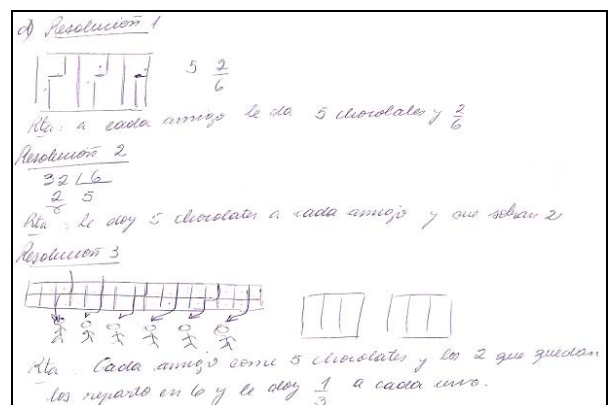 d) Resolución 1
5 2/6
Rta: a cada amigo le da 5 chocolates y 2/6
Resolución 2
32 | 6
2 5
Rta: Le doy 5 chocolates a cada amigo y me sobran 2
Resolución 3
Rta: Cada amigo come 5 chocolates y los 2 que quedan
los reparto en 6 y le doy 1/3 a cada uno.